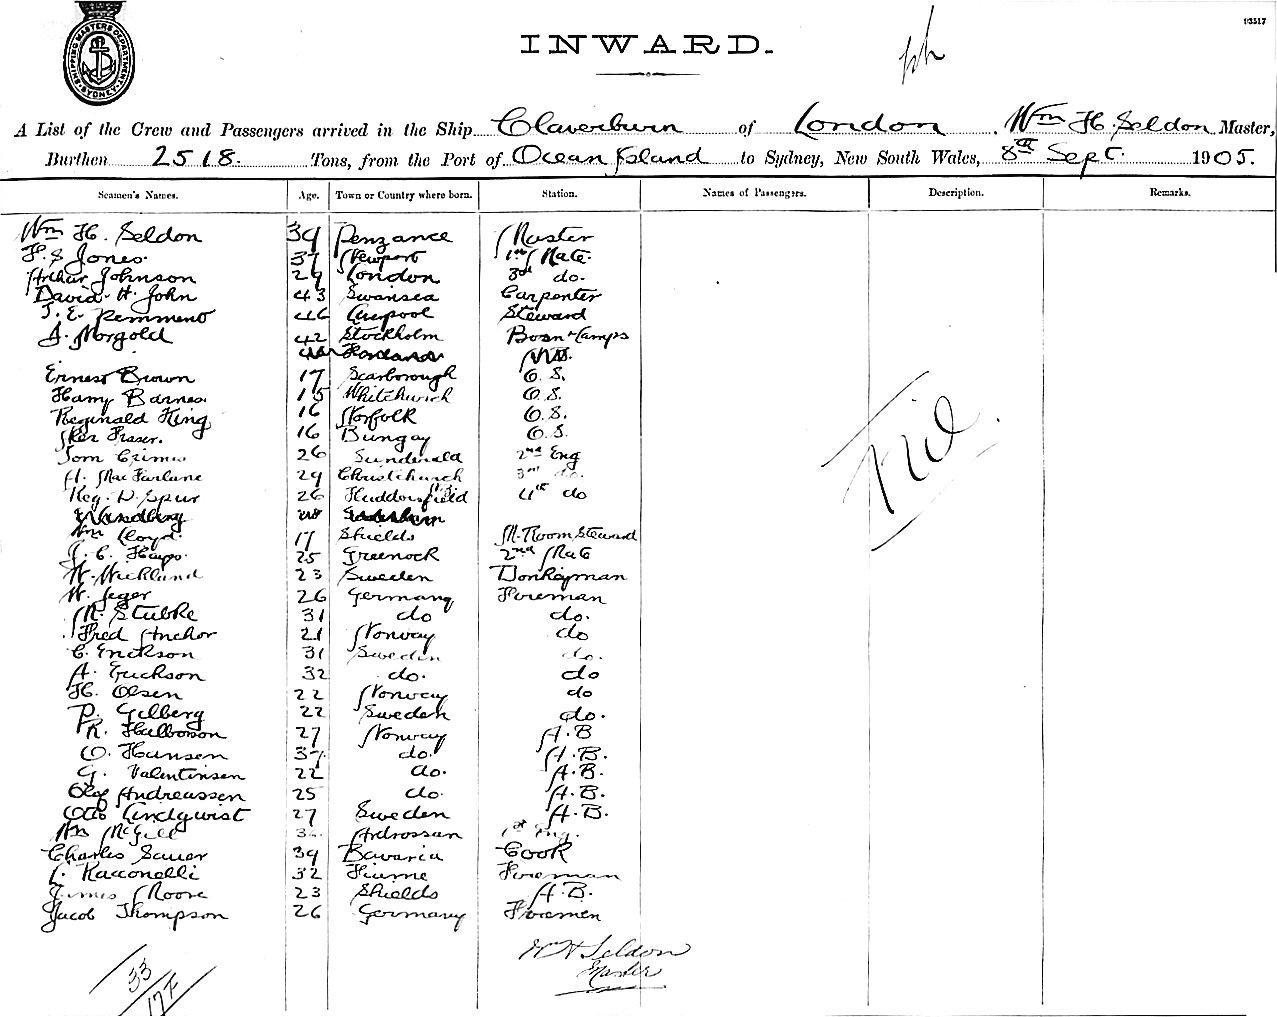 SHIPPING MASTERS DEPARTMENT SYDNEY
INWARD.
93517
A List of the Crew and Passengers arrived in the Ship Claverburn of London, Wm H. Seldon Master,
Burthen 2518. Tons, from the Port of Ocean Island to Sydney, New South Wales, 8th Sept. 1905.
Seamen's Names. Age. Town or Country where born. Station. Names of Passengers. Description. Remarks.
Wm H. Seldon 39 Penzance Master
F. S Jones. 37 Newport 1st Mate.
Arthur Johnson 29 London 3rd do.
David. H. John 43 Swansea Carpenter
46 Liverpool Steward
A. Norgold 42 Stockholm Bosn & Lamps
Ernest Brown 17 Scarborough O. S.
Harry Barnes 15 Whitchurch O. S.
Reginald King 16 Norfolk O. S.
Fraser. 16 Bungay O. S.
Tom Grimes 26 Sunderland 2nd Eng
H. MacFarlane 29 Christchurch 3rd do.
Reg. D. Spur 26 Huddersfield 4th do
Wm Lloyd. 17 Shields M. Room Steward
J. C. Hays. 25 Greenock 2nd Mate
W. Wickland 23 Sweden Donkeyman
W. Jeger 26 Germany Foreman
M. Stubke 31 do do.
Fred Anchor 21 Norway do
C. Erickson 31 Sweden do.
A. Erickson 32 do. do
H. Olsen 22 Norway do
P. Gilberg 22 Sweden do.
R. Halborson 27 Norway A. B
O. Hansen 37 do. A. B.
G. Valentinsen 22 do. A. B.
Olaf Andreassen 25 do. A. B.
Otto Lindqwist 27 Sweden A. B.
Wm McGill Ardrossan 1st Eng.
Charles Sauer 39 Bavaria Cook
Racconelli 32 Fiume Foreman
James Moore 23 Shields A. B.
Jacob Thompson 26 Germany Foremen
W H Seldon
Master
33